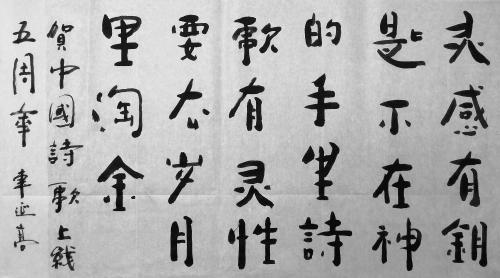 灵感有鈅
匙不在神
的手詩
歌有灵性
要岁月
里淘金
賀中國詩歌上綫
五周年 車延高